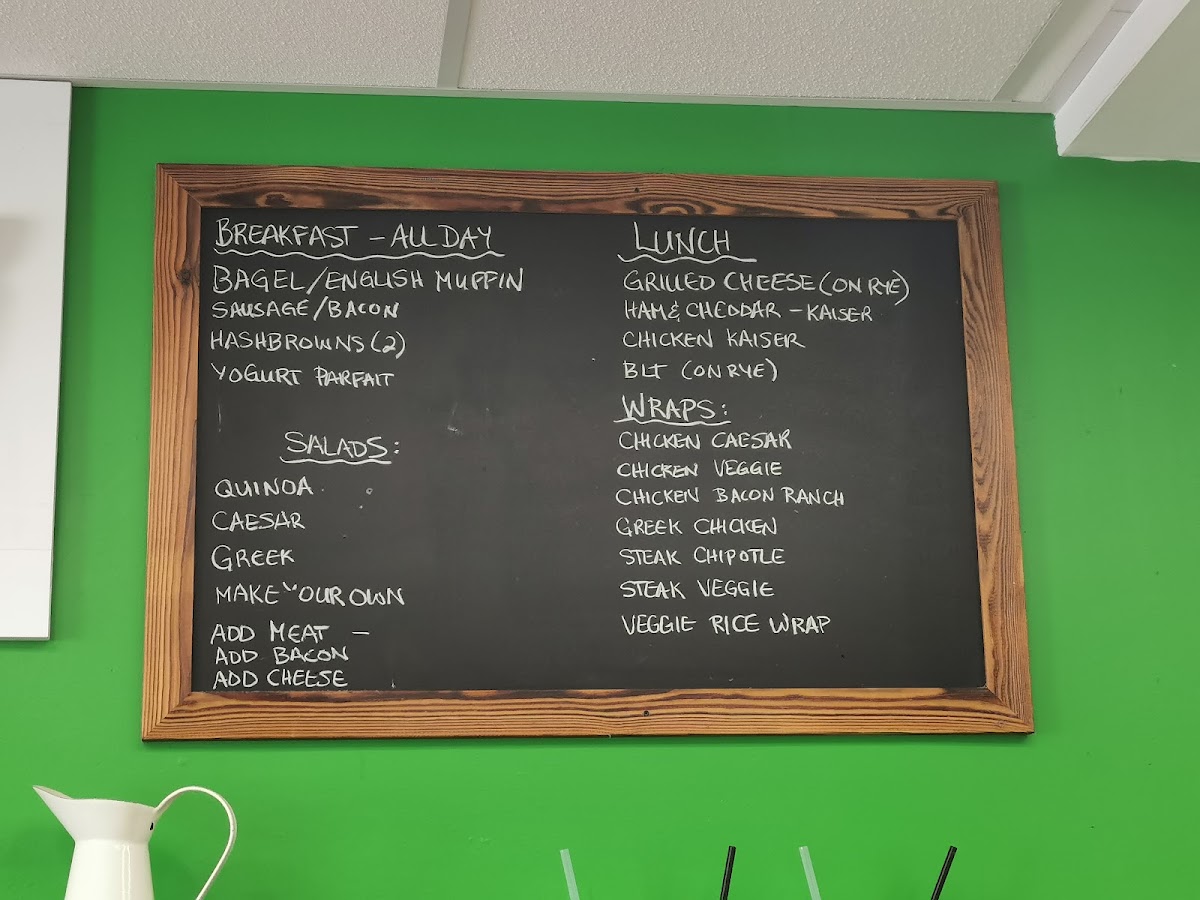 BREAKFAST - ALL DAY
BAGEL/ENGLISH MUFFIN
SAUSAGE/BACON
HASHBROWNS (2)
YOGURT PARFAIT
SALADS:
QUINOA
CAESAR
GREEK
MAKE YOUR OWN
ADD MEAT -
ADD BACON
ADD CHEESE
LUNCH
GRILLED CHEESE (ON RYE)
HAM & CHEDDAR - KAISER
CHICKEN KAISER
BLT (ON RYE)
WRAPS:
CHICKEN CAESAR
CHICKEN VEGGIE
CHICKEN BACON RANCH
GREEK CHICKEN
STEAK CHIPOTLE
STEAK VEGGIE
VEGGIE RICE WRAP